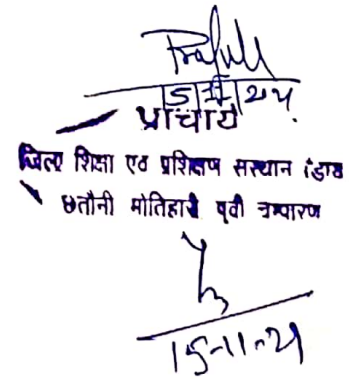 प्राचार्य
जिला शिक्षा एव प्रशिक्षण संस्थान डायट
छतौनी मोतिहारी पूर्वी चम्पारण
15-11-21